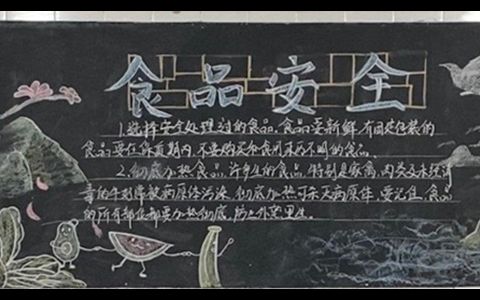 食品安全
1.选择安全处理过的食品。食品要新鲜,有固定包装的
食品要在保质期内,不要购买和食用来历不明的食品。
2.彻底加热食品,许多生的食品,特别是家禽、肉类及未经消
毒的牛奶常被病原体污染,彻底加热可杀灭病原体,要记住,食品
的所有部位都要加热彻底,防止外熟里生。